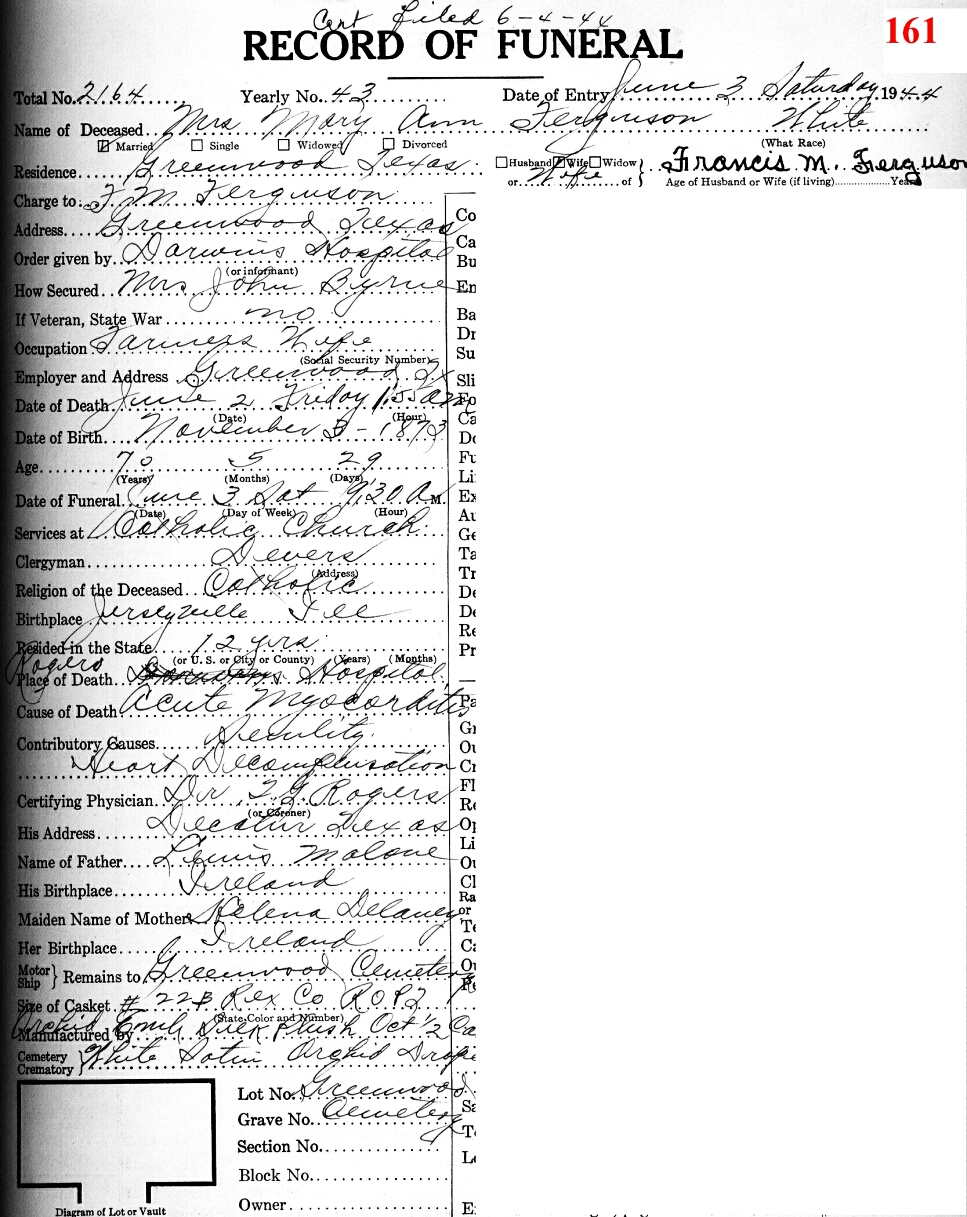 Cert Filed 6-4-44
161
RECORD OF FUNERAL
Total No. 2164 Yearly No. 43 Date of Entry June 3 Saturday 1944
Name of Deceased Mrs Mary Ann Ferguson White
(What Race)
Married Single Widowed Divorced
Residence Greenwood Texas
Husband Wife Widow
or Wife of } Francis M. Ferguson
Age of Husband or Wife (if living) Years
Charge to F. M. Ferguson
Address Greenwood Texas
Order given by Darwins Hospital
(or informant)
How Secured Mrs John Byrne
If Veteran, State War no
Occupation Farmers Wife
(Social Security Number)
Employer and Address Greenwood Tx
Date of Death June 2 Friday 1:55 am
(Date) (Hour)
Date of Birth November 3 - 1873
Age 70 5 29
(Years) (Months) (Days)
Date of Funeral June 3 Sat 9:30 A.M.
(Date) (Day of Week) (Hour)
Services at Catholic Church
Clergyman Devers
(Address)
Religion of the Deceased Catholic
Birthplace Jerseyville Ill
Resided in the State 12 yrs.
(or U.S. or City or County) (Years) (Months)
Rogers
Place of Death Hospital
Cause of Death Acute Myocarditis
Contributory Causes Senility
Heart Decompensation
Certifying Physician Dr T G Rogers
(or Coroner)
His Address Decatur Texas
Name of Father Lewis Malone
His Birthplace Ireland
Maiden Name of Mother Helena Delaney
Her Birthplace Ireland
Motor
Ship } Remains to Greenwood Cemetery
Size of Casket # 22B Rex Co R.O.P2
(State Color and Number)
Manufactured by Orchid Emb Silk Plush Oct 1/2
Cemetery
Crematory } White Satin Orchid
Lot No. Greenwood
Grave No. Cemetery
Section No.
Block No.
Owner
Diagram of Lot or Vault